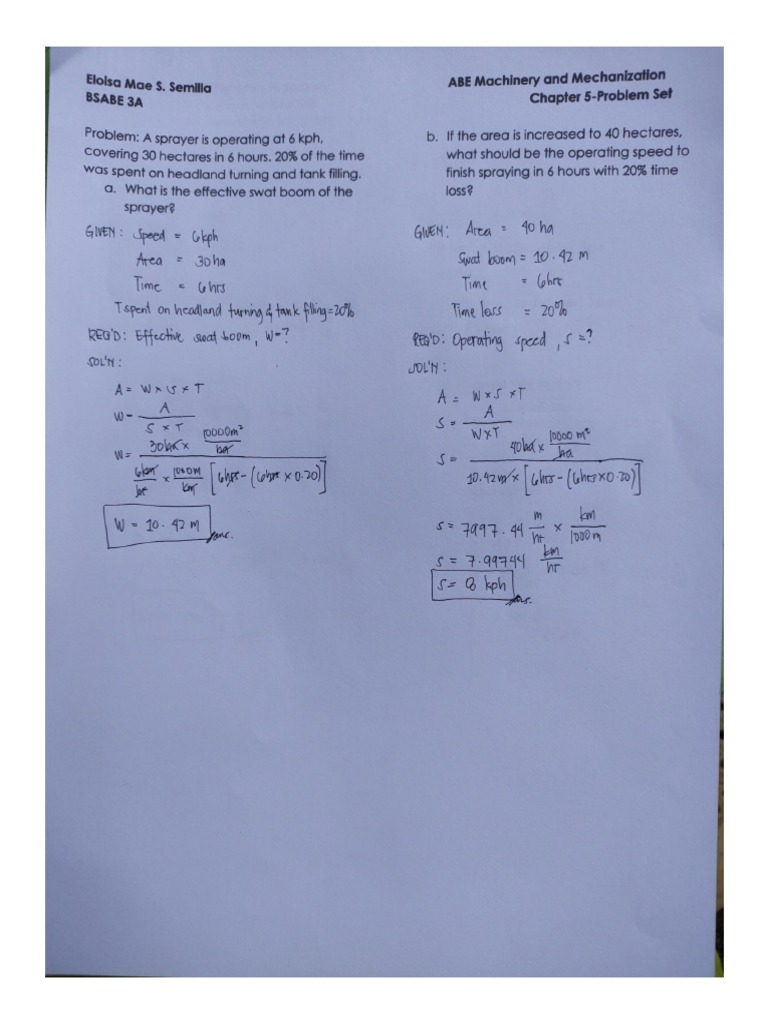 Eloisa Mae S. Semilla
BSABE 3A
ABE Machinery and Mechanization
Chapter 5-Problem Set
Problem: A sprayer is operating at 6 kph,
covering 30 hectares in 6 hours. 20% of the time
was spent on headland turning and tank filling.
a. What is the effective swat boom of the
sprayer?
GIVEN: Speed = 6kph
Area = 30ha
Time = 6hrs
T spent on headland turning & tank filling=20%
REQ'D: Effective swat boom, W=?
SOL'N:
A = W x S x T
W = A
S x T
W = 30ha x 10000m²
ha
6km
hr x 1000m
km [6hrs - (6hrs x 0.20)]
W = 10.42 m
ans.
b. If the area is increased to 40 hectares,
what should be the operating speed to
finish spraying in 6 hours with 20% time
loss?
GIVEN: Area = 40 ha
Swat boom = 10.42 m
Time = 6hrs
Time loss = 20%
REQ'D: Operating speed, S=?
SOL'N:
A = W x S x T
S = A
W x T
S = 40ha x 10000 m²
ha
10.42m x [6hrs - (6hrs x 0.20)]
S = 7997.44 m
hr x km
1000m
S = 7.99744 km
hr
S = 8 kph
ans.